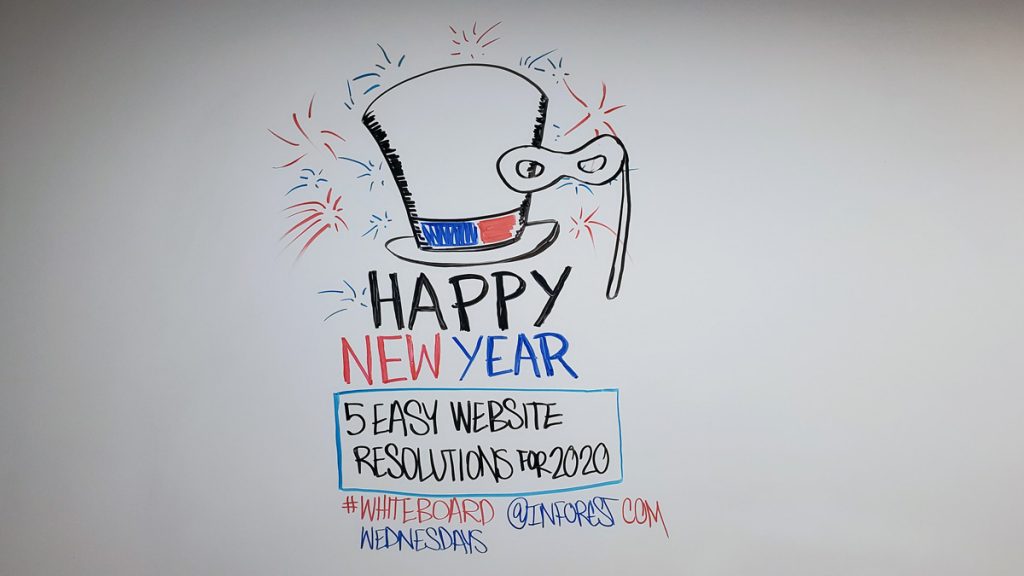 HAPPY
NEW YEAR
5 EASY WEBSITE
RESOLUTIONS FOR 2020
#WHITEBOARD @INFOREST COM
WEDNESDAYS